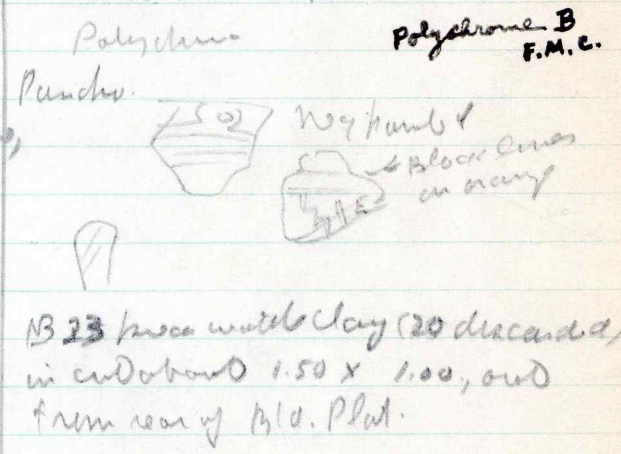 Polychrome
Polychrome B
F.M.C.
Pancho.
Black lines
on orange
NB 33 pieces wattle clay (20 discarded)
in cut about 1.50 x 1.00, out
from rear of Bld. Plat.